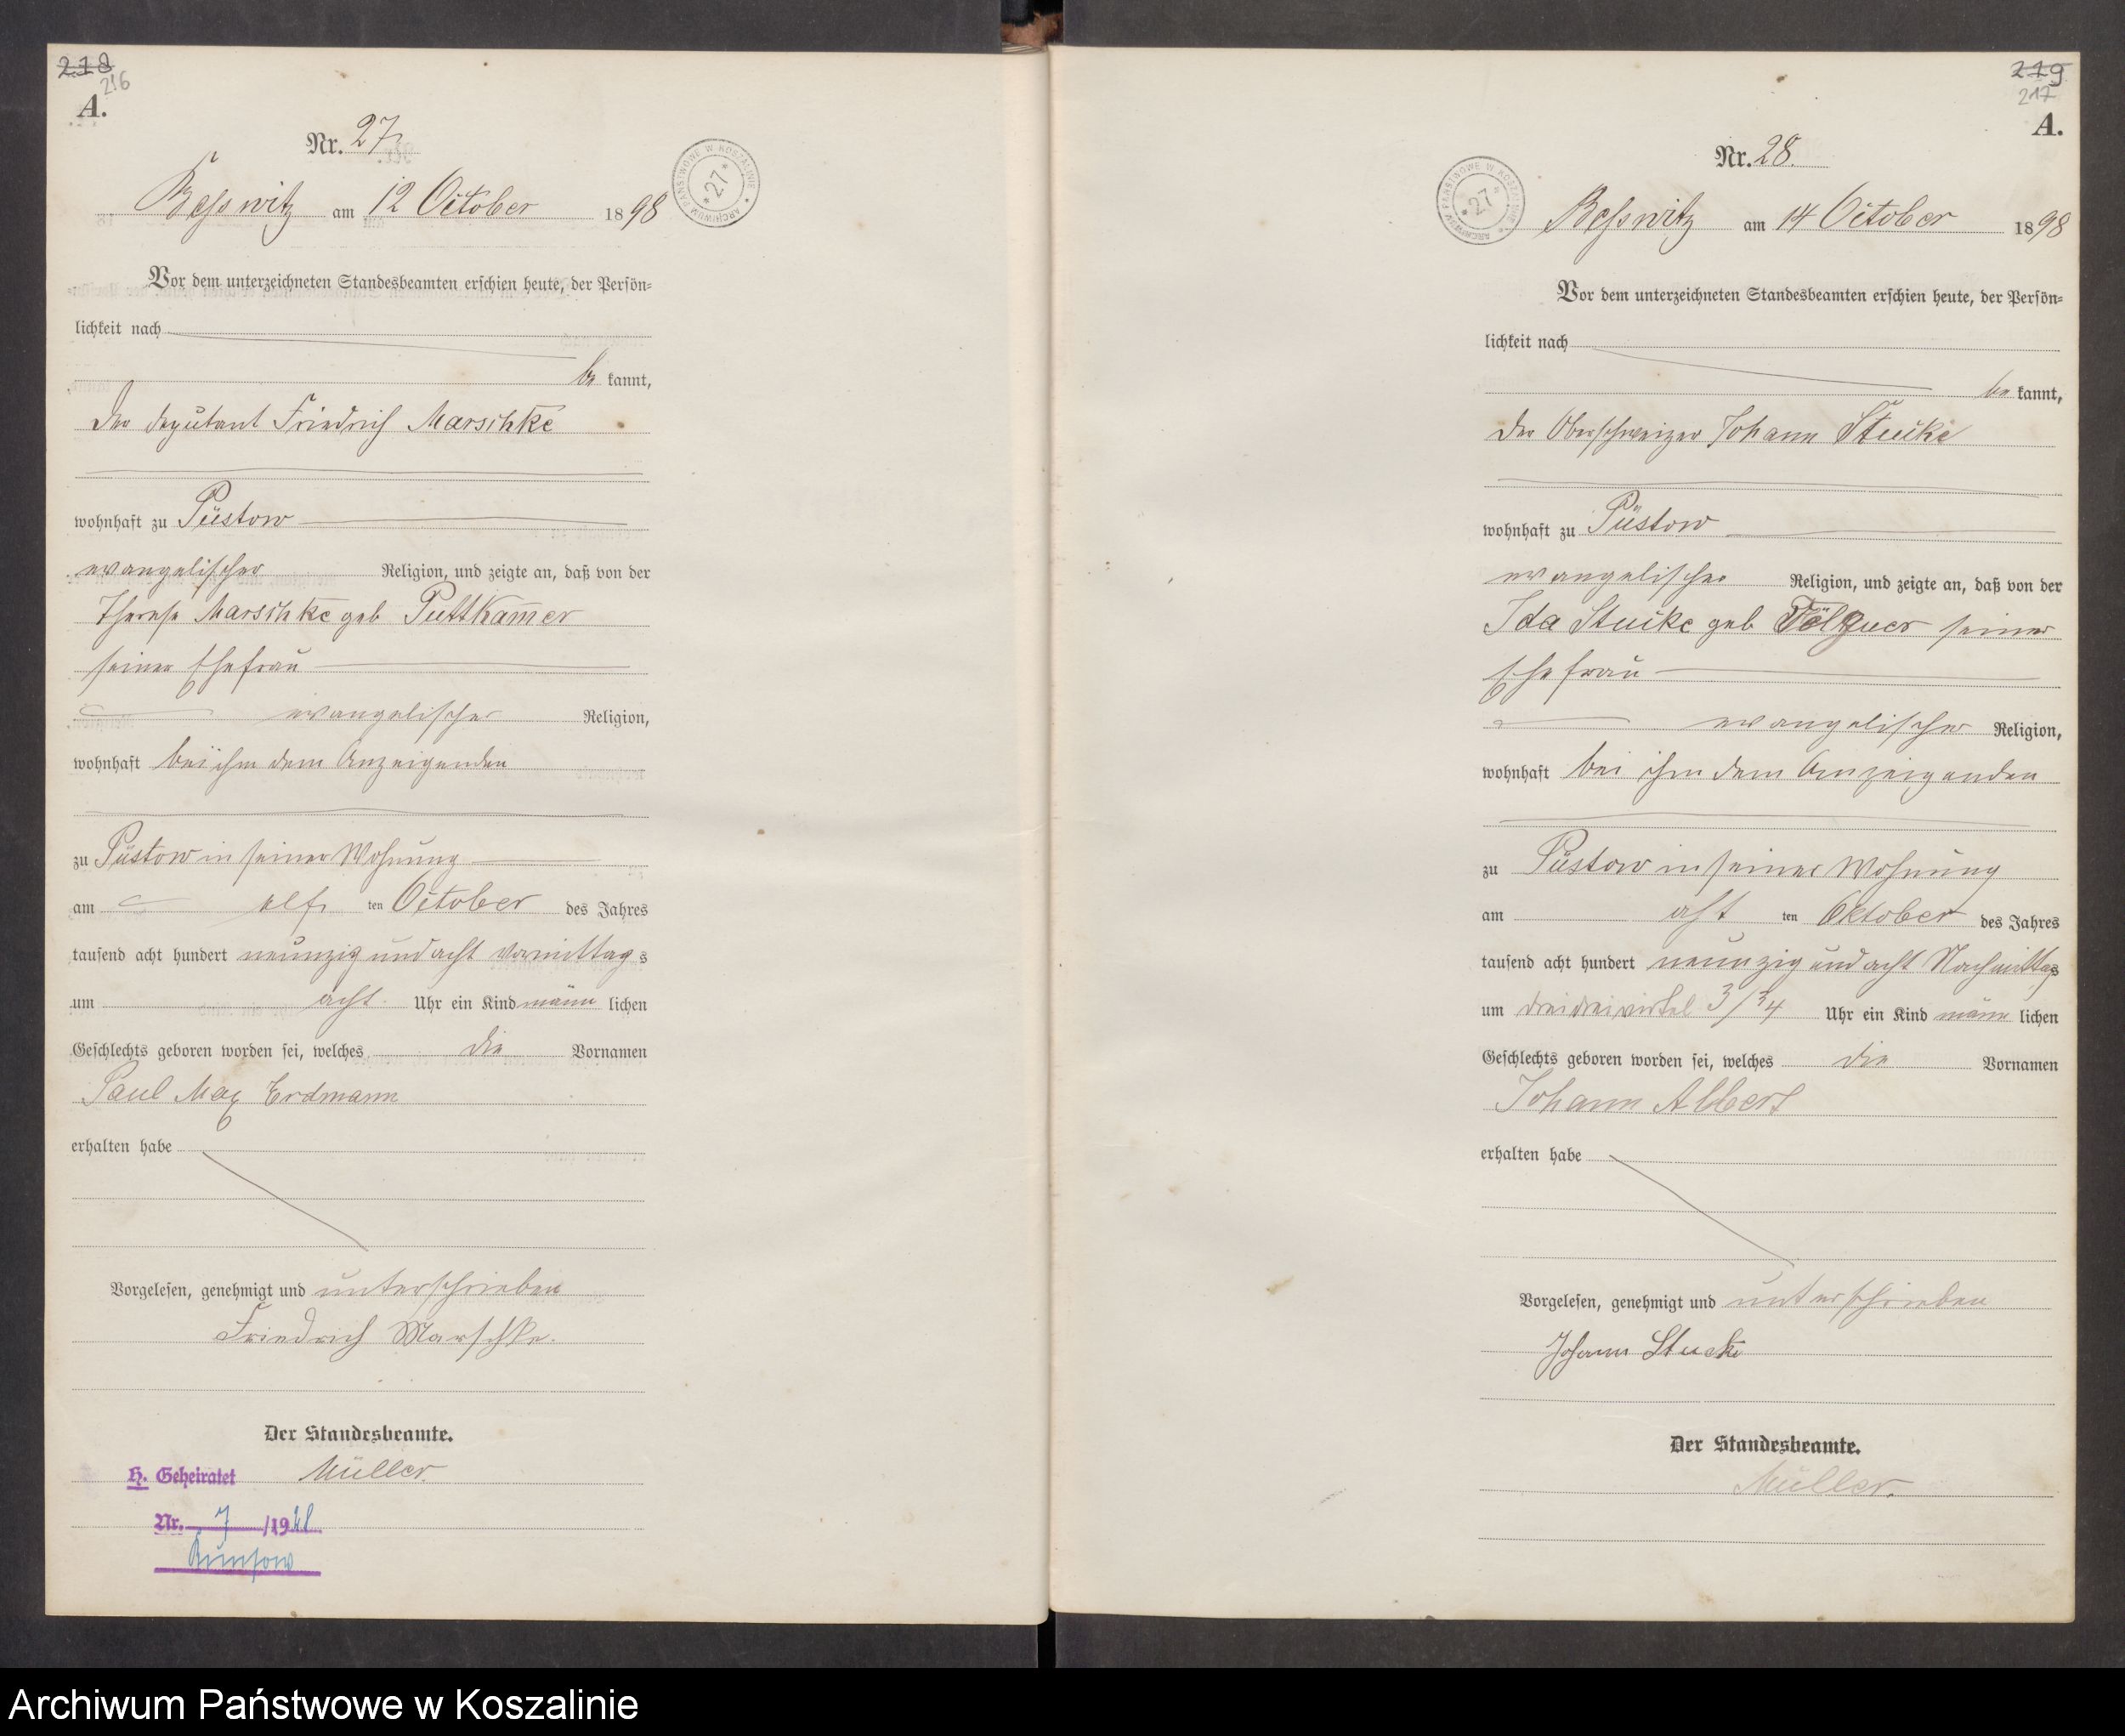 218
216
A.
Nr. 27
ARCHIWUM PAŃSTWOWE W KOSZALINIE
* 27 *
Besswitz am 12 October 1898
Vor dem unterzeichneten Standesbeamten erschien heute, der Persön=
lichkeit nach
be kannt,
der Deputant Friedrich Marschke
wohnhaft zu Püstow
evangelischer Religion, und zeigte an, daß von der
Therese Marschke geb Puttkam̅er
seiner Ehefrau
evangelischer Religion,
wohnhaft bei ihm dem Anzeigenden
zu Püstow in seiner Wohnung
am elf ten October des Jahres
tausend acht hundert neunzig und acht Vormittags
um acht Uhr ein Kind männlichen
Geschlechts geboren worden sei, welches die Vornamen
Paul Max Erdmann
erhalten habe
Vorgelesen, genehmigt und unterschrieben
Friedrich Marschke.
Der Standesbeamte.
Müller.
H. Geheiratet
Nr. 7 /19
219
217
A.
Nr. 28.
ARCHIWUM PAŃSTWOWE W KOSZALINIE
* 27 *
Besswitz am 14 October 1898
Vor dem unterzeichneten Standesbeamten erschien heute, der Persön=
lichkeit nach
be kannt,
der Oberschweizer Johann Stucke
wohnhaft zu Püstow
evangelischer Religion, und zeigte an, daß von der
Ida Stucke geb seiner
Ehefrau
evangelischer Religion,
wohnhaft bei ihm dem Anzeigenden
zu Püstow in seiner Wohnung
am acht ten Oktober des Jahres
tausend acht hundert neunzig und acht Nachmittags
um dreidreiviertel 3/34 Uhr ein Kind männlichen
Geschlechts geboren worden sei, welches die Vornamen
Johann Albert
erhalten habe
Vorgelesen, genehmigt und unterschrieben
Johann Stucki
Der Standesbeamte.
Müller.
Archiwum Państwowe w Koszalinie